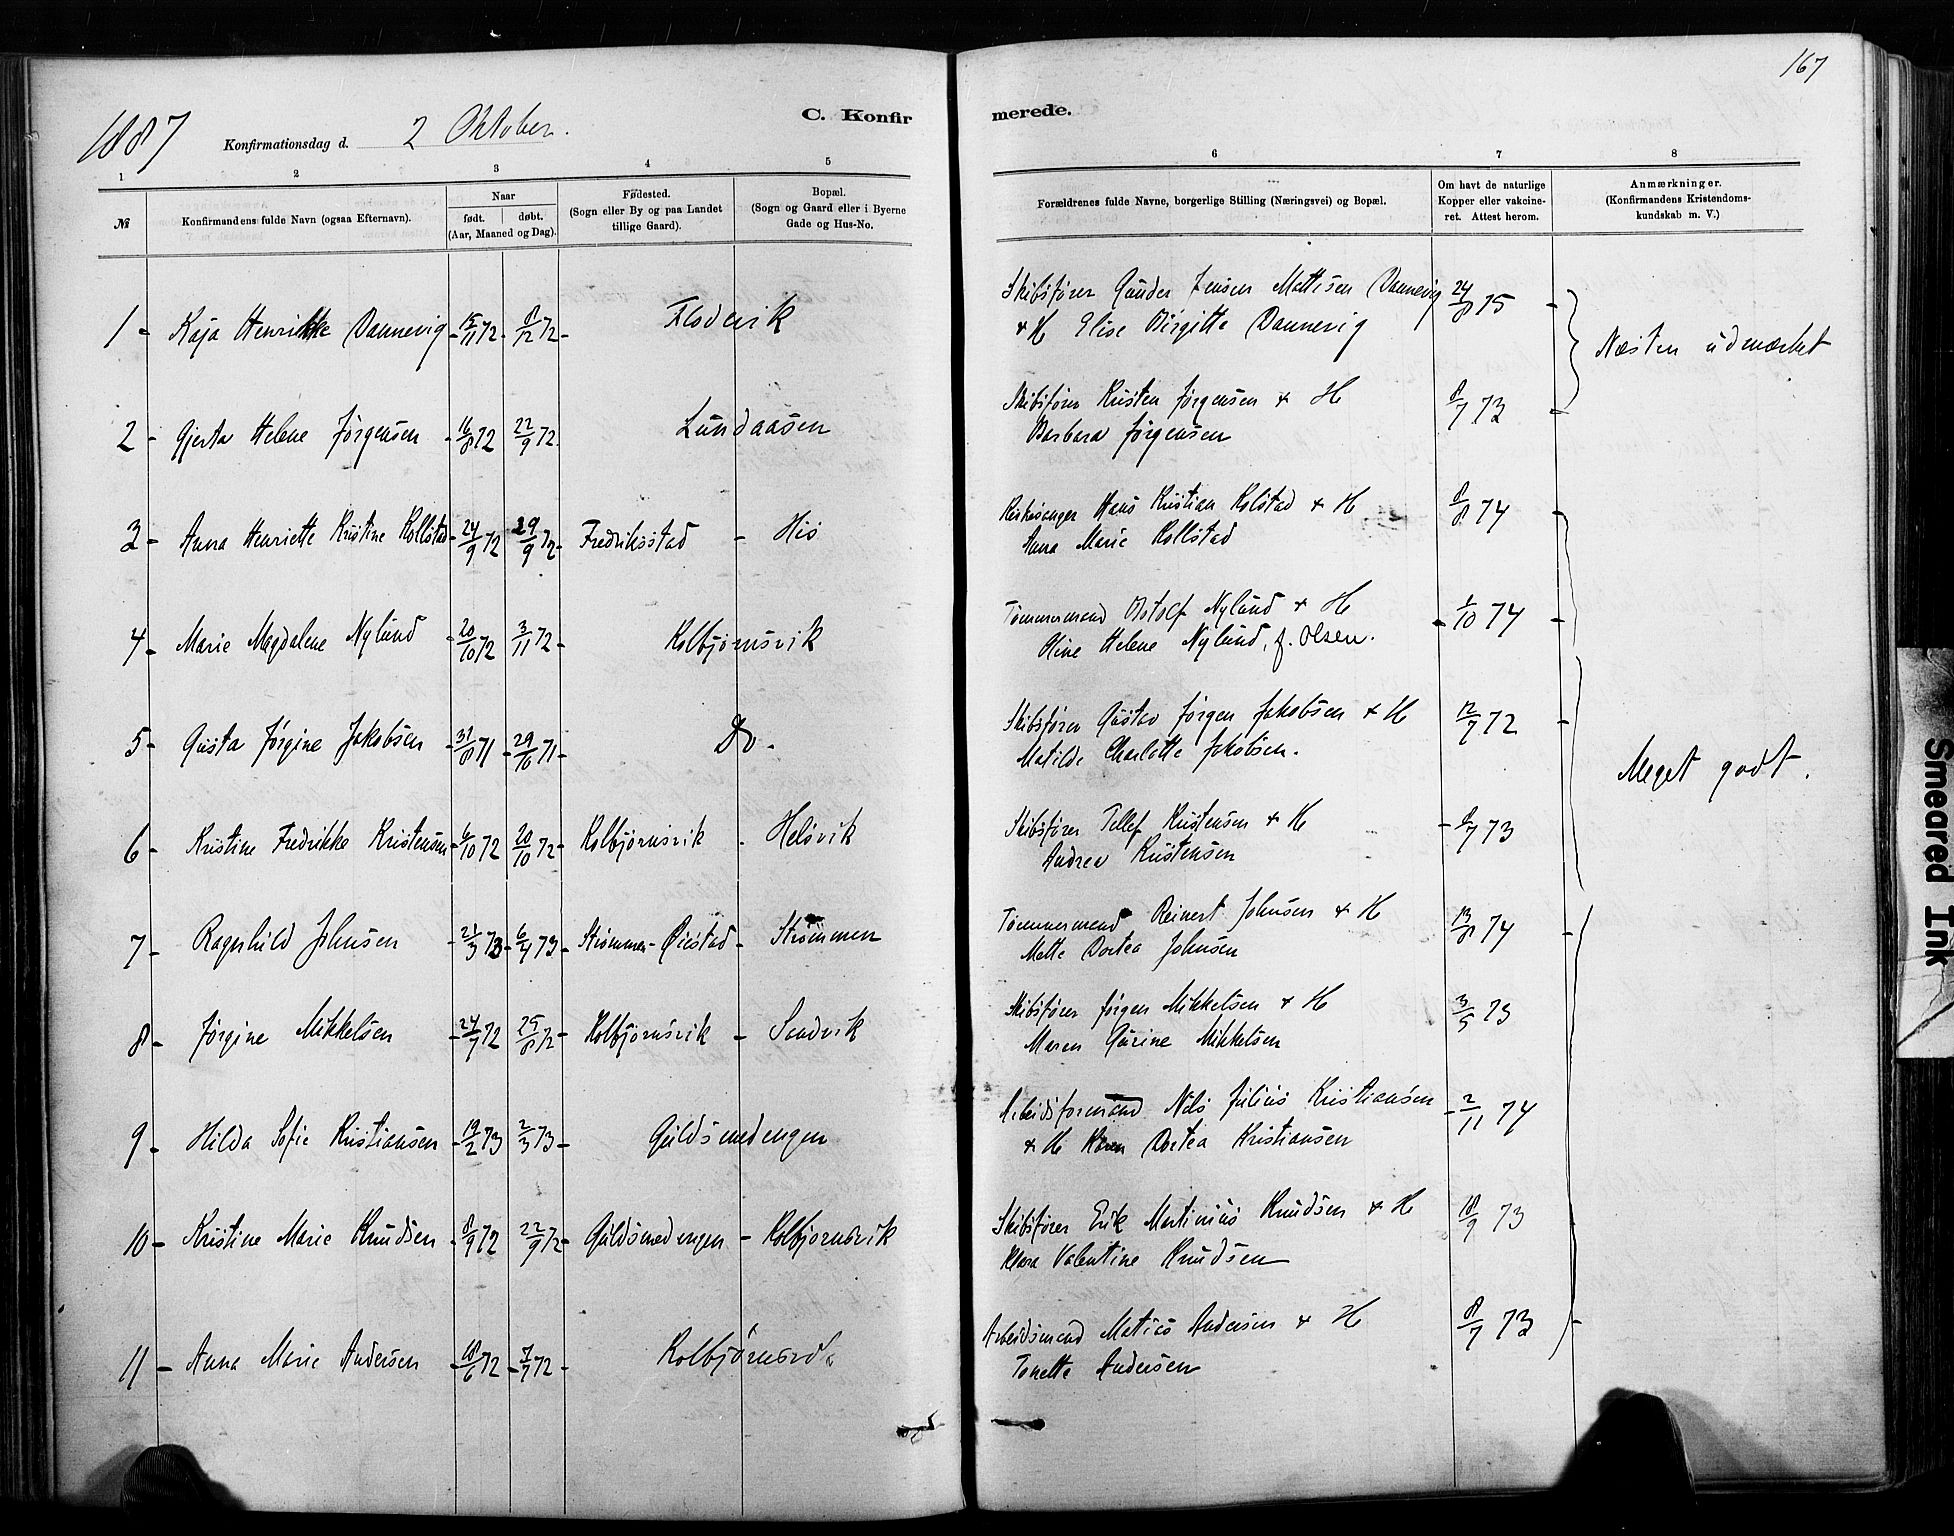 167
1887
C. Konfirmerede.
Konfirmationsdag d. 2 Oktober.
1 2 3 4 5 6 7 8
№
Konfirmandens fulde Navn (ogsaa Efternavn).
Naar
født. døbt.
(Aar, Maaned og Dag).
Fødested.
(Sogn eller By og paa Landet
tillige Gaard).
Bopæl.
(Sogn og Gaard eller i Byerne
Gade og Hus-No.
Forældrenes fulde Navne, borgerlige Stilling (Næringsvei) og Bopæl.
Om havt de naturlige
Kopper eller vakcine-
ret. Attest herom.
Anmærkninger.
(Konfirmandens Kristendoms-
kundskab m. V.)
1 - Kaja Henrikke Dannevig - 15/11 72 - 8/12 72 - Flodevik
Skibsfører Gunder Jensen Mattisen Dannevig 24/8 75 -
+ H Elise Birgitte Dannevig
Næsten udmærket
2 - Gjerta Helene Jørgensen - 16/8 72 22/9 72 Lundaasen
Skibsfører Kristen Jørgensen + H 8/7 73 -
Barbara Jørgensen
3 - Anna Henriette Kristine Kollstad - 24/9 72 29/9 72 - Fredriksstad - His
Kirkesanger Hans Kristian Kolstad + H 8/8 74 -
Anna Marie Kollstad
4 - Marie Magdalene Nylund - 20/10 72 3/11 72 - Kolbjørnsvik
Tømmermand Ostolf Nylund + H - 1/10 74 -
Oline Helene Nylund, f. Olsen.
5 - Gusta Jørgine Jakobsen - 31/8 71 - 29/10 71 - Do.
Skibsfører Gustav Jørgen Jakobsen + H 12/7 72 -
Matilde Charlotte Jakobsen.
Meget godt.
6 - Kristine Fredrikke Kristensen - 6/10 72 20/10 72 - Kolbjørnsvik - Helsvik
Skibsfører Tellef Kristensen + H - 8/7 73
Andrea Kristensen
7 - Ragnhild Johnsen - 21/3 73 - 6/4 73 - Strømmen - Øiestad - Strømmen
Tømmermand Reinert Johnsen + H 13/8 74 -
Mette Dortea Johnsen
8 - Jørgine Mikkelsen - 24/7 72 25/8 72 - Kolbjørnsvik - Sandvik
Skibsfører Jørgen Mikkelsen + H 3/5 73
Maren Gurine Mikkelsen
9 - Hilda Sofie Kristiansen - 19/2 73 2/3 73 - Guldsmedengen
Arbeidsformand Nils Julius Kristiansen - 2/11 74
+ H Karen Dortea Kristiansen
10 - Kristine Marie Knudsen - 8/9 72 22/9 72 - Guldsmedengen - Kolbjørnsvik
Skibsfører Erik Martinius Knudsen + H 18/9 73
Klara Valentine Knudsen
11 - Anna Marie Andersen - 18/6 72 - 7/7 72 - Kolbjørnsvik
Arbeidsmand Matias Andersen + H 8/7 73 -
Tonette Andersen
Smeared Ink